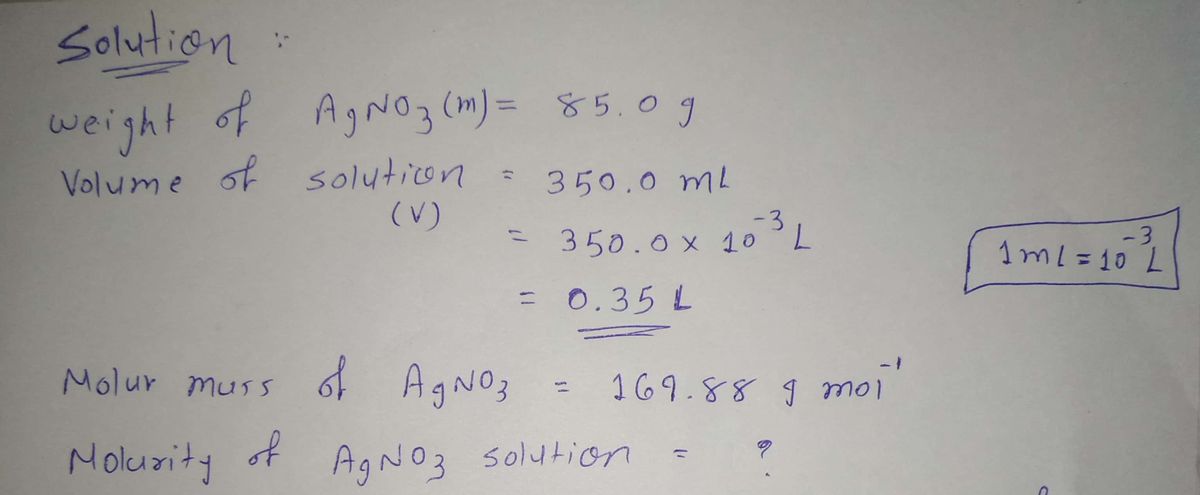 Solution :
weight of AgNO₃ (m) = 85.0 g
Volume of solution = 350.0 mL
(V)
= 350.0 x 10⁻³ L
1mL = 10⁻³ L
= 0.35 L
Molar mass of AgNO₃ = 169.88 g mol⁻¹
Molarity of AgNO₃ solution = ?